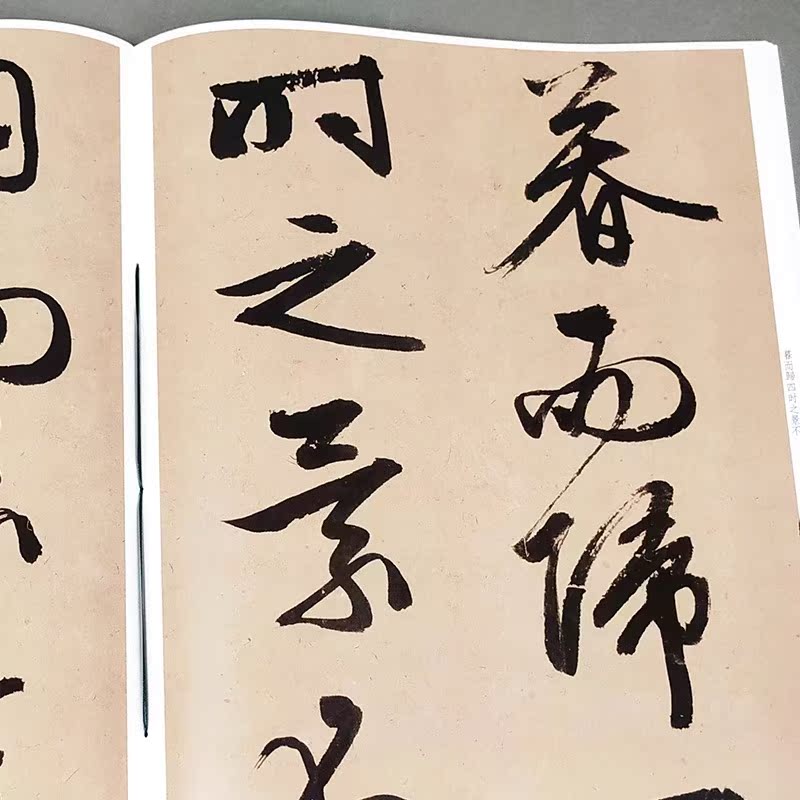 暮而歸
时之景不
暮而歸四时之景不